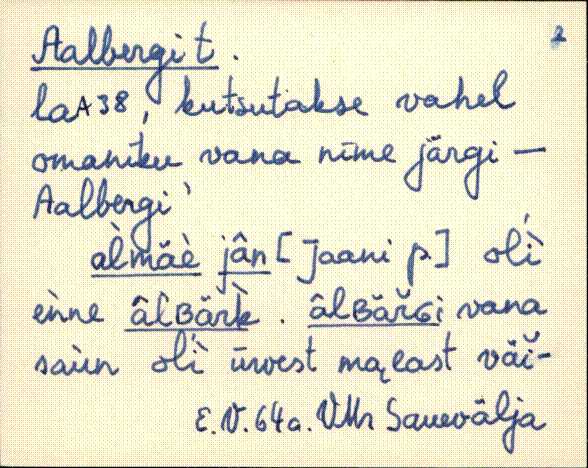 Aalbergi t. 2
la A 38, kutsutakse vahel
omaniku vana nime järgi —
Aalbergi'
àlmäè jân [Jaani p.] olì
eǹne âlBärk̀. âlBäřGi vana
saùn olì ūrvest mąeast väi-
E.V. 64 a. VMr Sauevälja